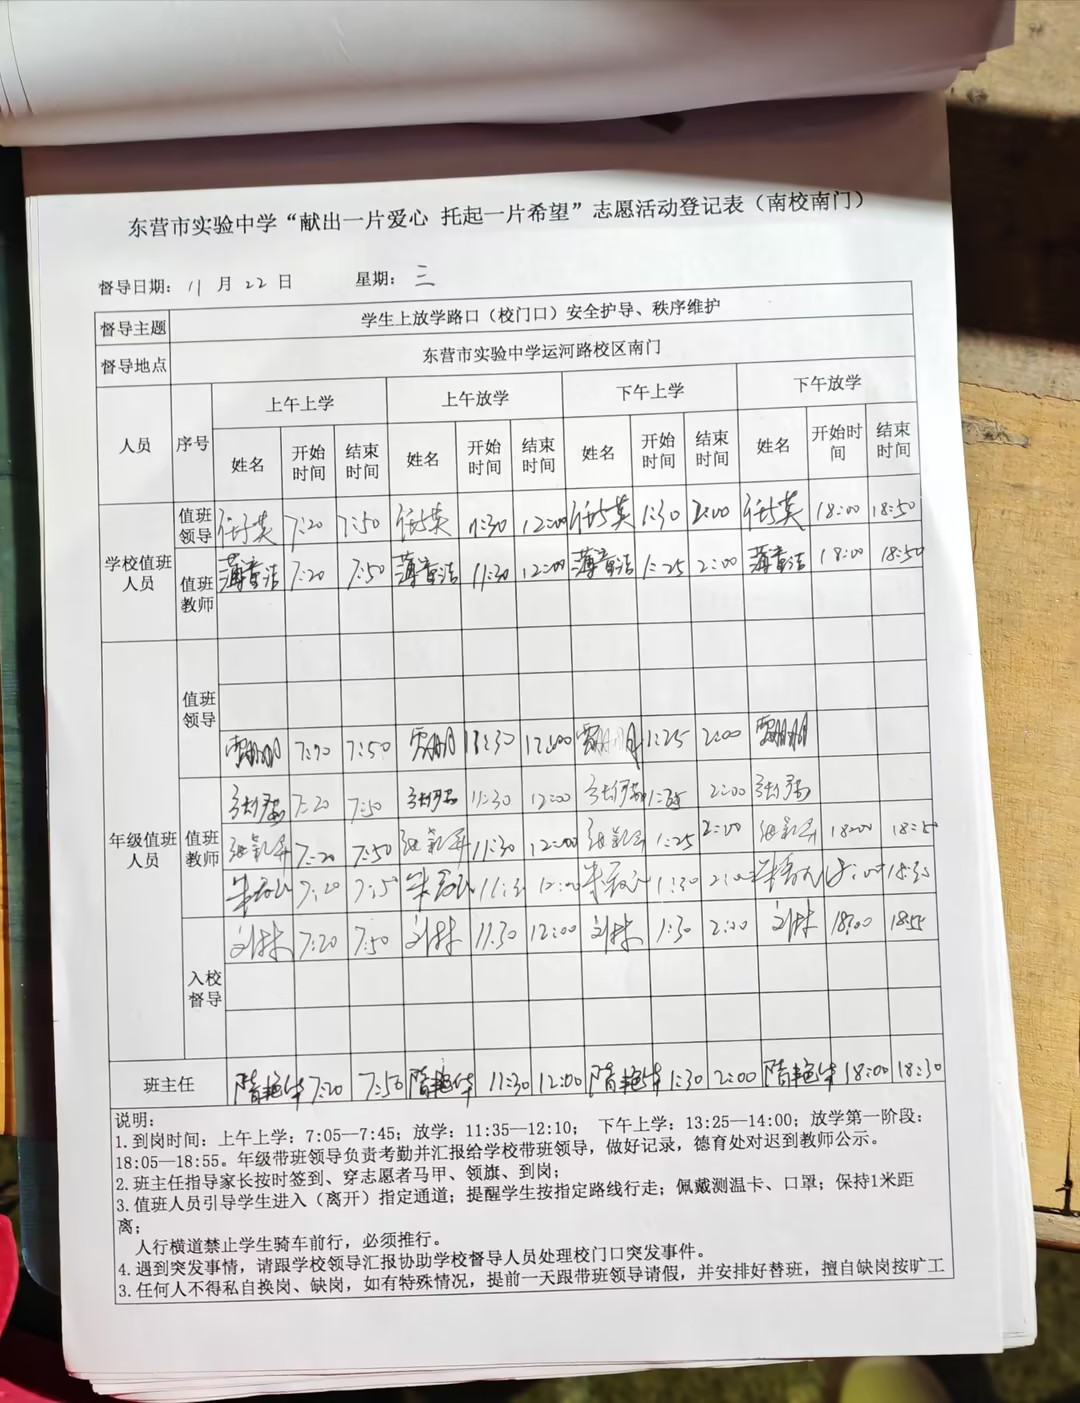 东营市实验中学“献出一片爱心 托起一片希望”志愿活动登记表（南校南门）
督导日期： 11 月 22 日 星期： 三
督导主题 学生上放学路口（校门口）安全护导、秩序维护
督导地点 东营市实验中学运河路校区南门
人员 序号 上午上学 上午放学 下午上学 下午放学
姓名 开始时间 结束时间 姓名 开始时间 结束时间 姓名 开始时间 结束时间 姓名 开始时间 结束时间
学校值班人员
值班领导 7:20 7:50 11:30 12:00 1:30 2:00 18:00 18:50
值班教师 7:20 7:50 11:30 12:00 1:25 2:00 18:00 18:50
年级值班人员
值班领导
7:20 7:50 11:30 12:00 1:25 2:00
值班教师
7:20 7:50 11:30 12:00 1:25 2:00
7:20 7:50 11:30 12:00 1:25 2:00 18:00
7:20 1:30
入校督导
刘林 7:20 7:50 刘林 11:30 12:00 刘林 1:30 2:00 刘林 18:00 18:55
班主任 隋艳华 7:20 7:50 隋艳华 11:30 12:00 隋艳华 1:30 2:00 隋艳华 18:00 18:30
说明：
1.到岗时间：上午上学：7:05—7:45；放学：11:35—12:10； 下午上学：13:25—14:00；放学第一阶段：
18:05—18:55。年级带班领导负责考勤并汇报给学校带班领导，做好记录，德育处对迟到教师公示。
2.班主任指导家长按时签到、穿志愿者马甲、领旗、到岗；
3.值班人员引导学生进入（离开）指定通道；提醒学生按指定路线行走；佩戴测温卡、口罩；保持1米距
离；
人行横道禁止学生骑车前行，必须推行。
4.遇到突发事情，请跟学校领导汇报协助学校督导人员处理校门口突发事件。
3.任何人不得私自换岗、缺岗，如有特殊情况，提前一天跟带班领导请假，并安排好替班，擅自缺岗按旷工